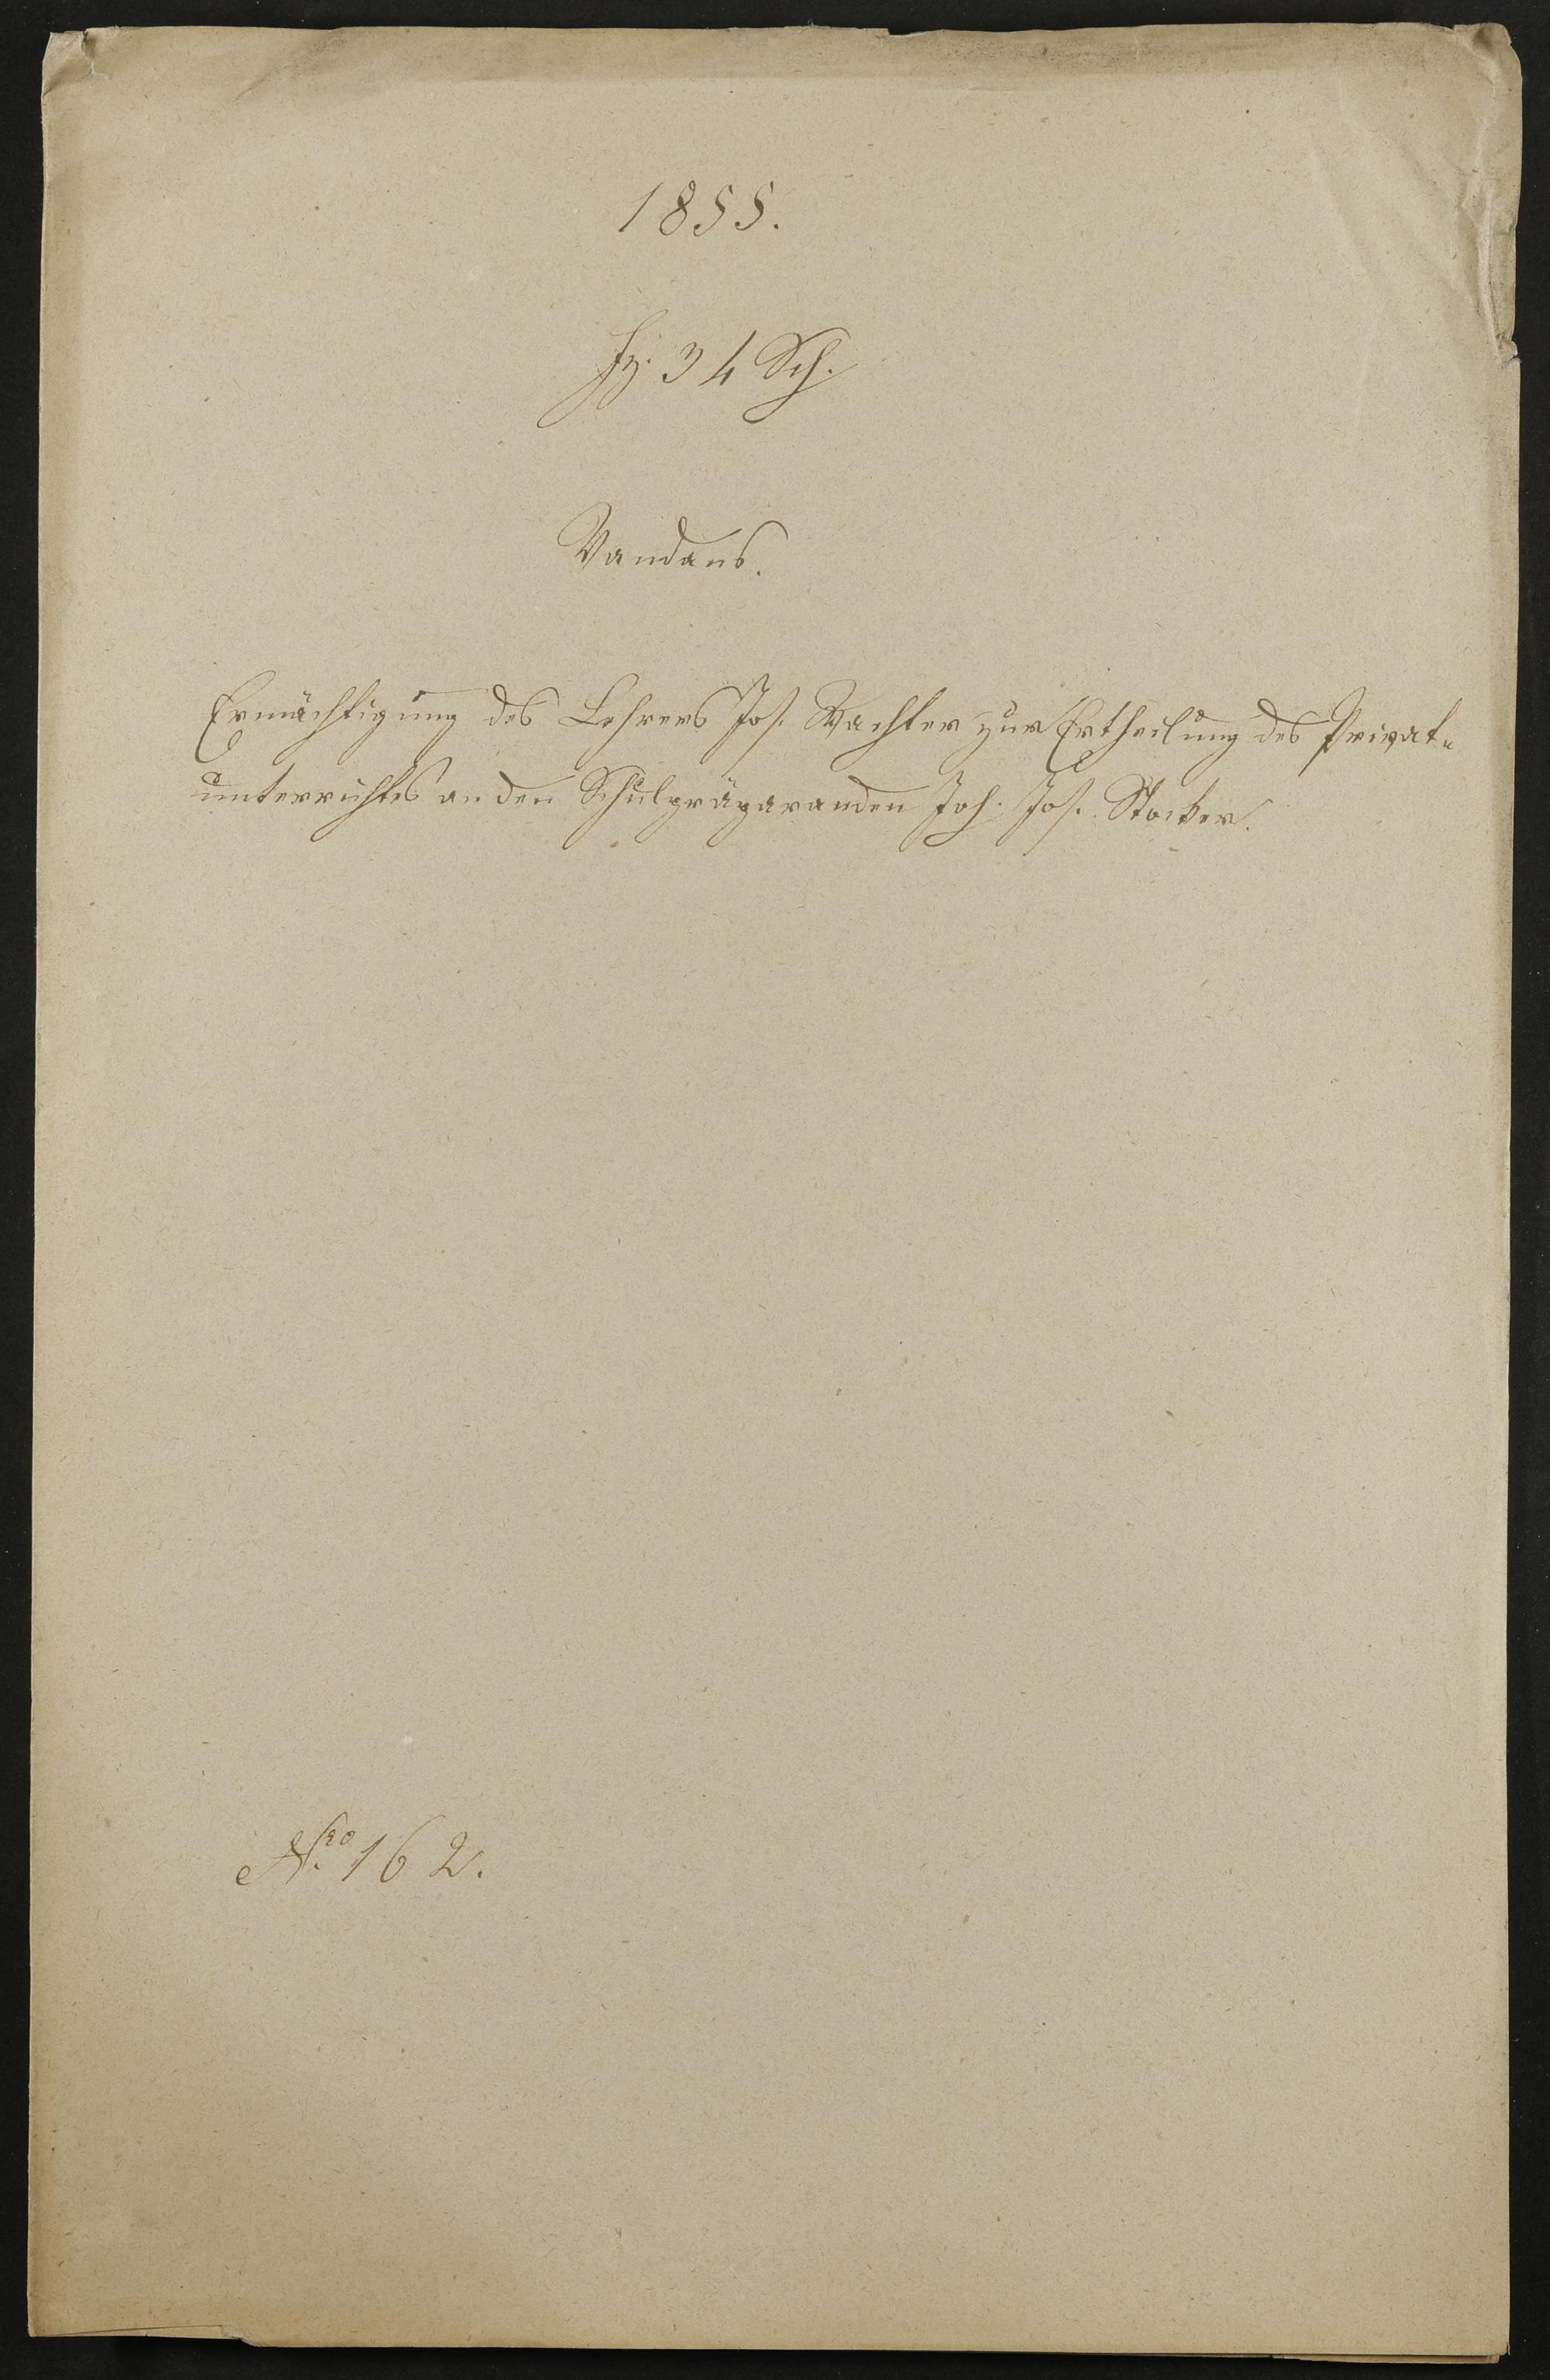 1855.
Fz. 34 Sch.
Vandans.
Ermächtigung des Lehrers Jos. Wachter zur Ertheilung des Privat-
unterrichtes an den Schulpräparanden Joh. Jos. Stocker.
Nro. 162.